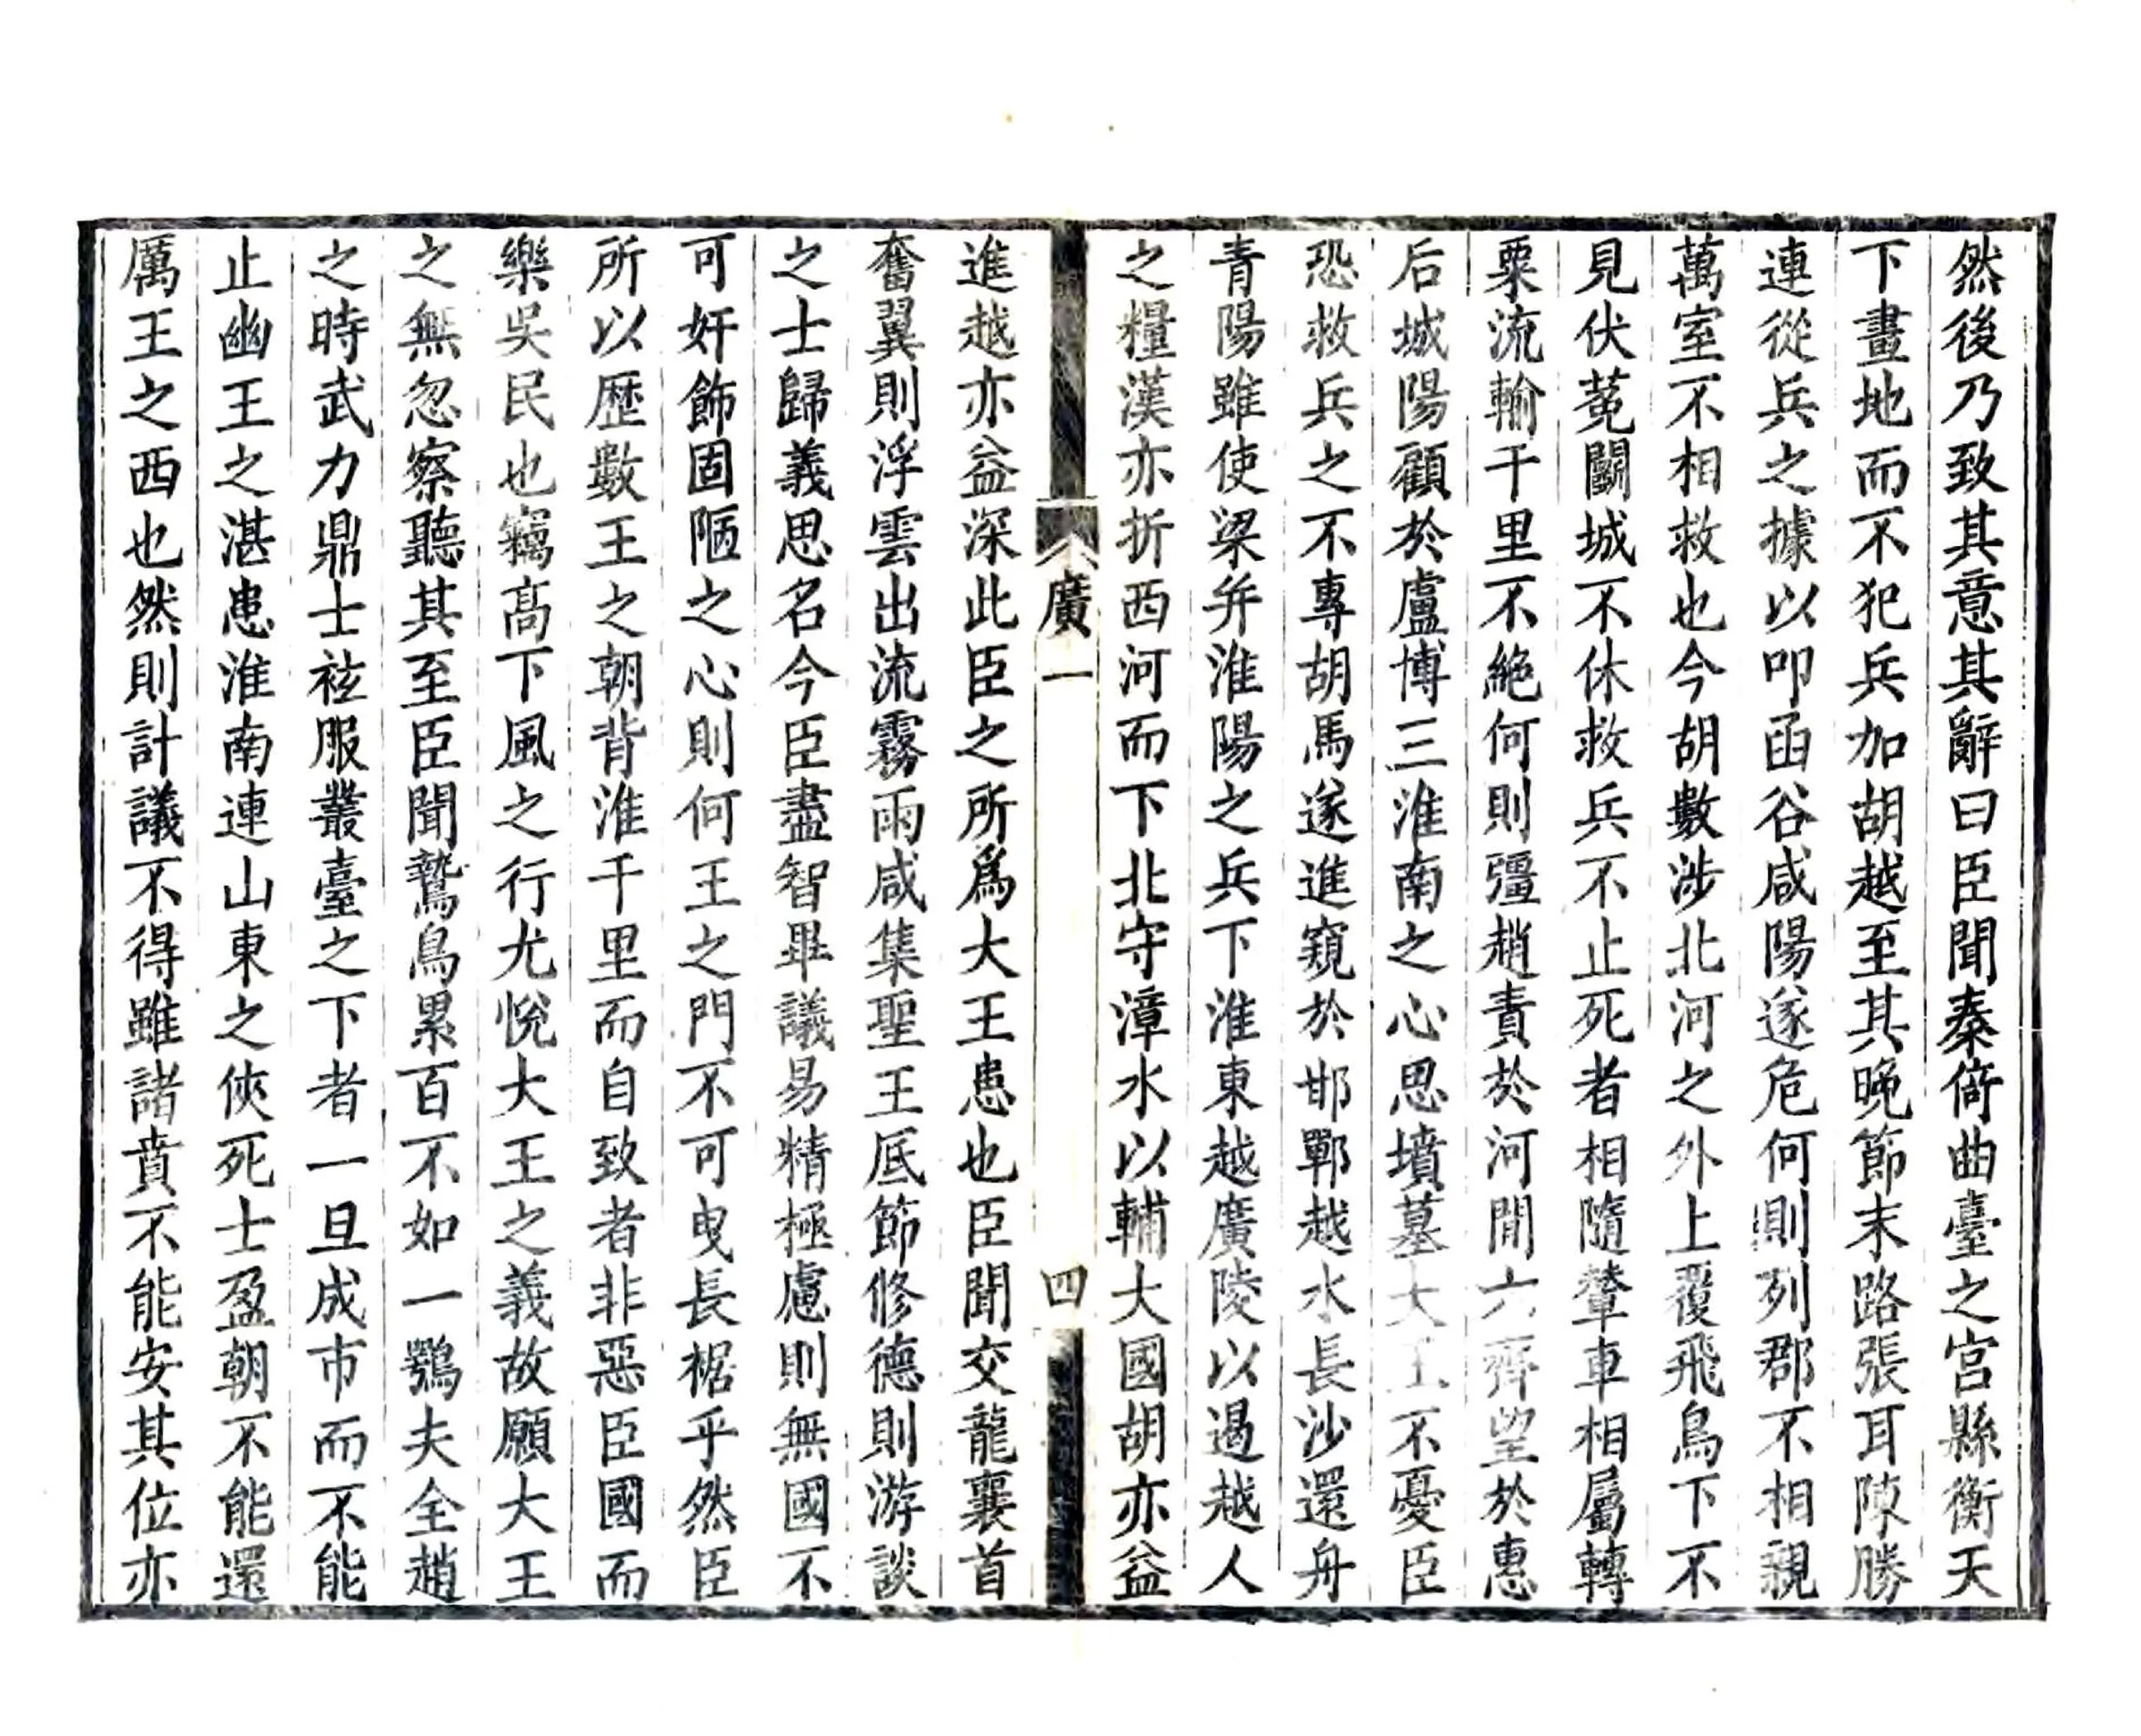 然後乃致其意其辭曰臣聞秦倚曲臺之宫縣衡天
下畫地而不犯兵加胡越至其晚節末路張耳陳勝
連從兵之據以叩函谷咸陽遂危何則列郡不相親
萬室不相救也今胡數涉北河之外上覆飛鳥下不
見伏菟鬬城不休救兵不止死者相隨輦車相屬轉
粟流輸千里不絶何則彊趙責於河間六齊望於惠
后城陽顧於盧博三淮南之心思墳墓大王不憂臣
恐救兵之不專胡馬遂進窺於邯鄲越水長沙還舟
青陽雖使梁并淮陽之兵下淮東越廣陵以遏越人
之糧漢亦折西河而下北守漳水以輔大國胡亦益
廣一
四
進越亦益深此臣之所爲大王患也臣聞交龍襄首
奮翼則浮雲出流霧雨咸集聖王底節修德則游談
之士歸義思名今臣盡智畢議易精極慮則無國不
可奸飾固陋之心則何王之門不可曳長裾乎然臣
所以歷數王之朝背淮千里而自致者非惡臣國而
樂吳民也竊髙下風之行尤悅大王之義故願大王
之無忽察聽其至臣聞鷙鳥累百不如一鶚夫全趙
之時武力鼎士袨服叢臺之下者一旦成市而不能
止幽王之湛患淮南連山東之俠死士盈朝不能還
厲王之西也然則計議不得雖諸賁不能安其位亦